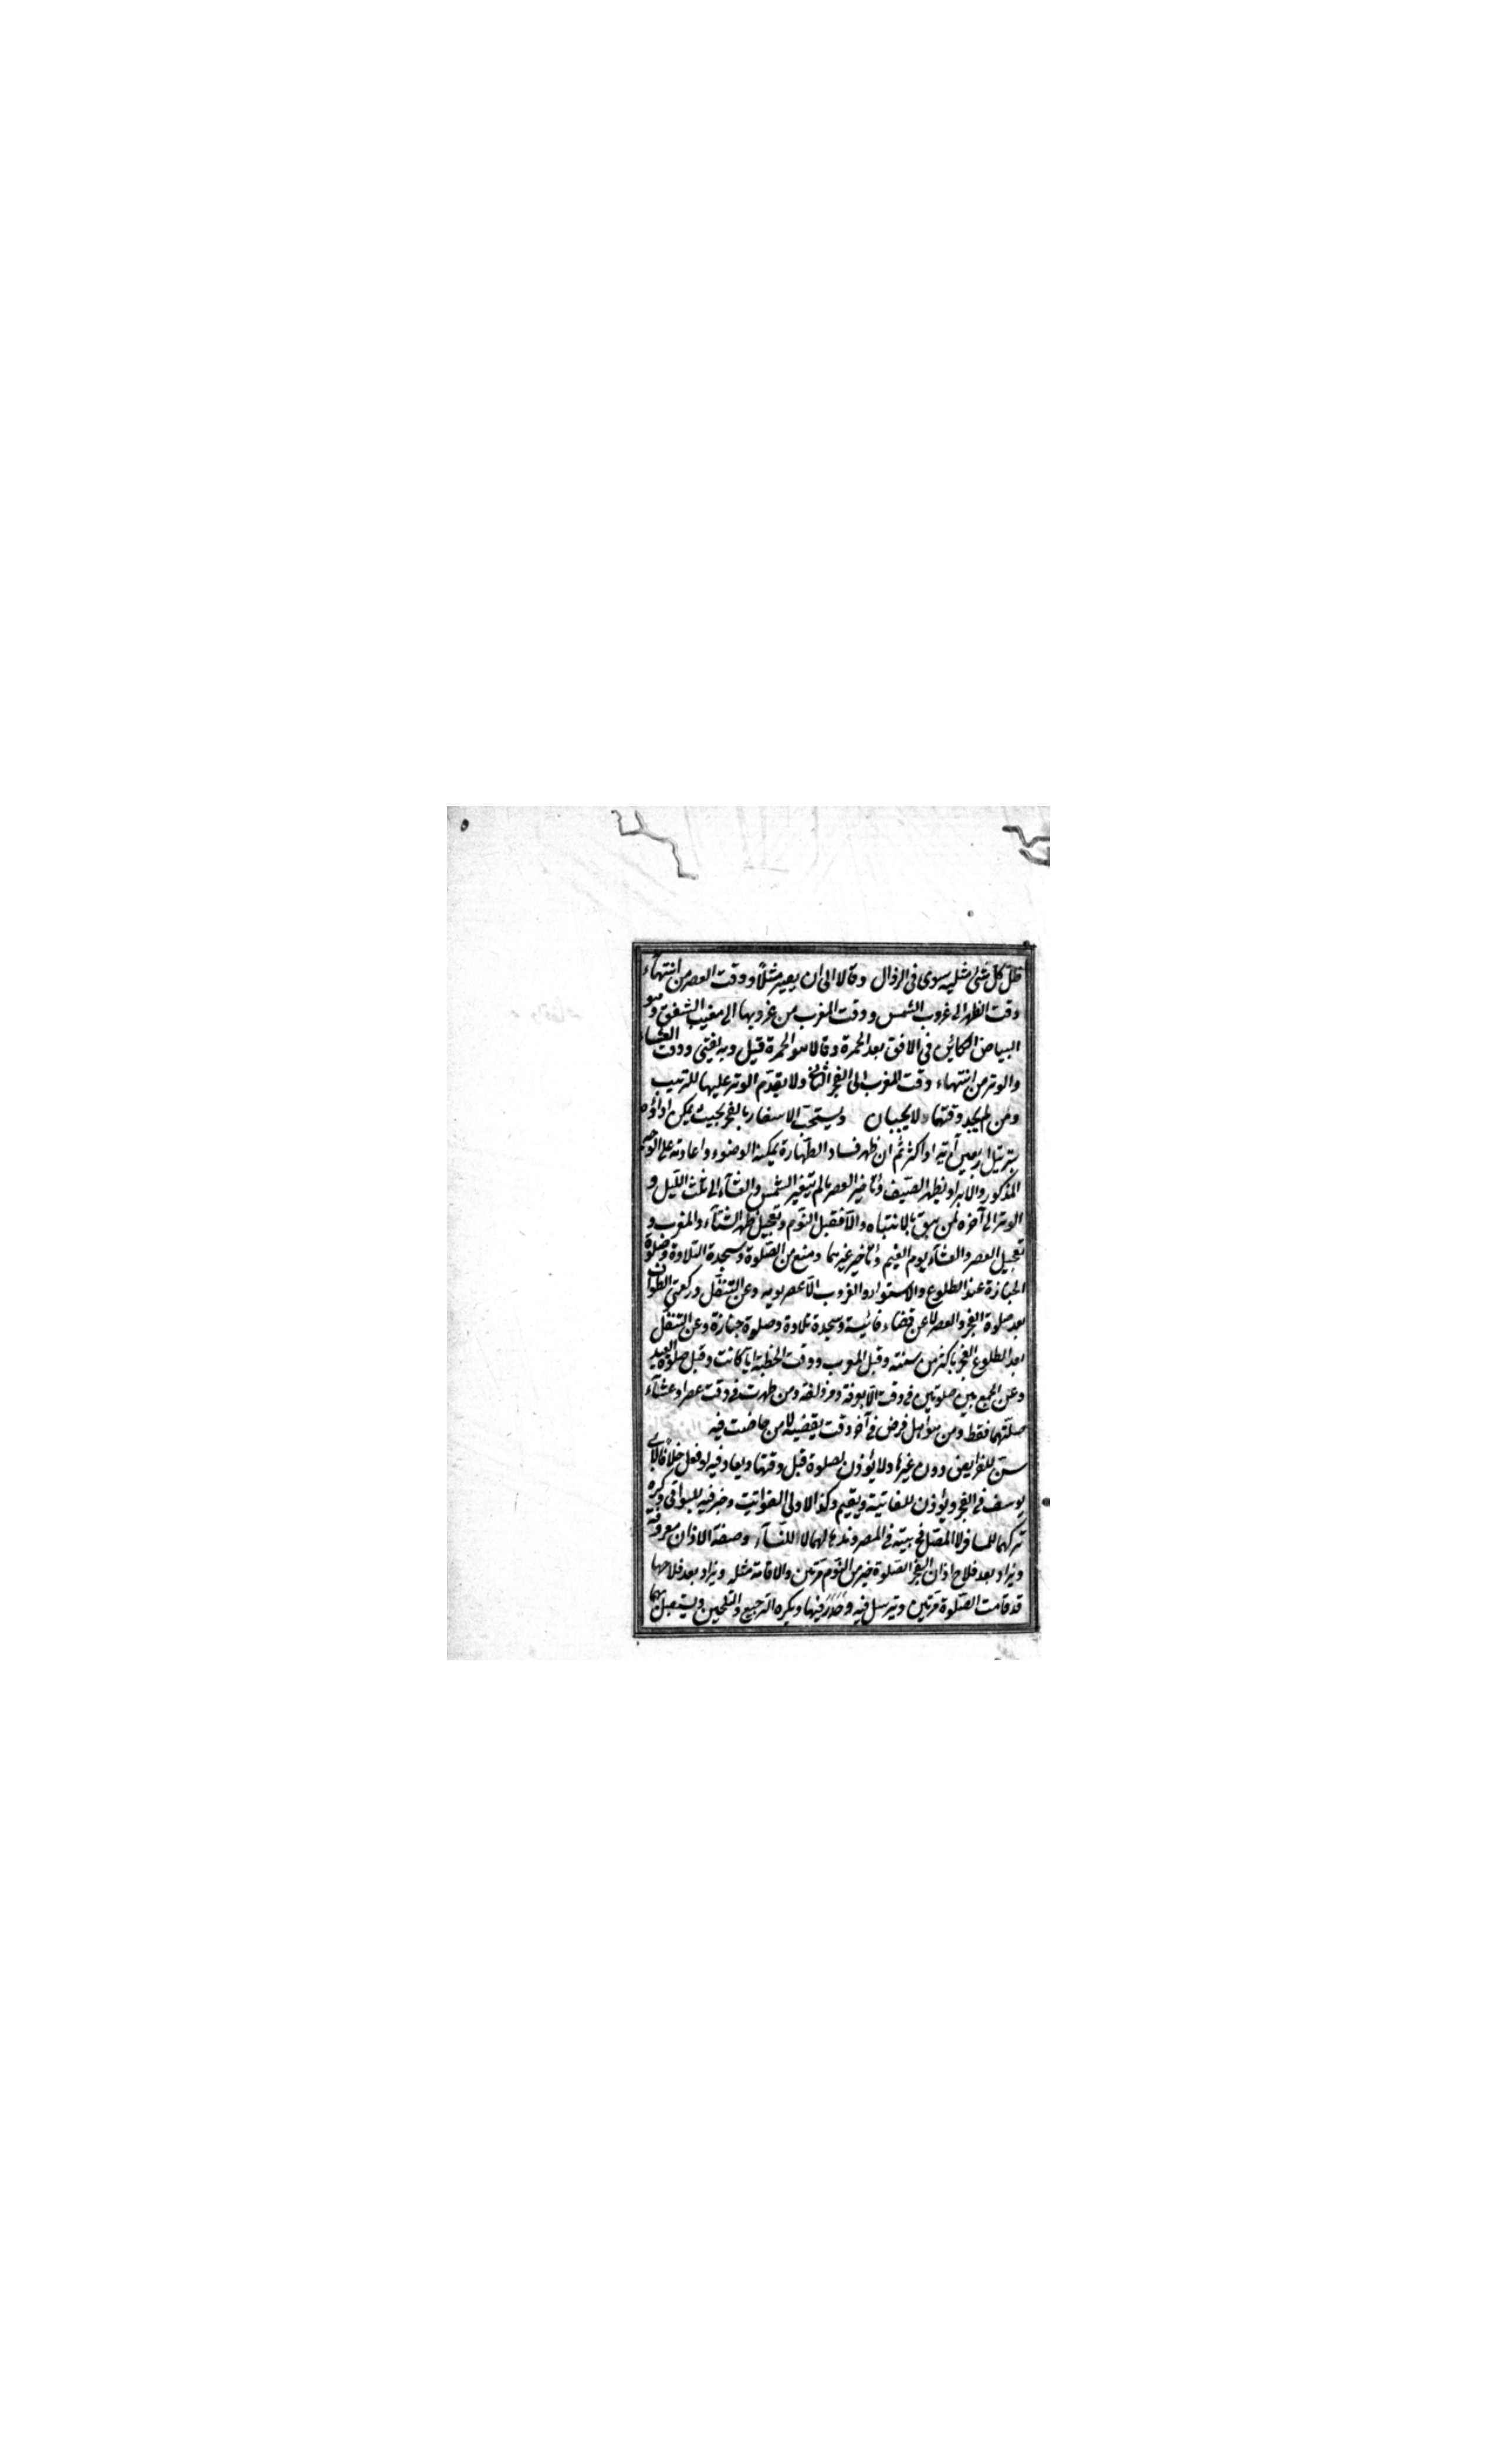 ٥
ظل كل شئ مثليه سوى فئ الزوال وقالا الى ان يصير مثلاً ووقت العصر من انتهاء
وقت الظهر الى غروب الشمس ووقت المغرب من غروبها الى مغيب الشفق وهو
البياض الكائن فى الافق بعد الحمرة وقالا هو الحمرة قيل وبه يفتى ووقت العشاء
والوتر من انتهاء وقت المغرب الى الفجر الثانى ولا يقدم الوتر عليها للترتيب
ومن لم يجد وقتهما لا يجبان ويستحب الاسفار بالفجر بحيث يمكن اداؤه
بترتيل اربعين آية او اكثر ثم ان ظهر فساد الطهارة يمكنه الوضوء واعادته على الوجه
المذكور والابراد بظهر الصيف وتأخير العصر ما لم تتغير الشمس والعشاء الى ثلث الليل و
الوتر الى آخره لمن يثق بالانتباه والا فقبل النوم وتعجيل ظهر الشتاء والمغرب و
تعجيل العصر والعشاء يوم الغيم وتأخير غيرهما ومنع من الصلوة وسجدة التلاوة وصلوة
الجنازة عند الطلوع والاستواء والغروب الا عصر يومه وعن التنفل وركعتى الطواف
بعد صلوة الفجر والعصر لا عن قضاء فائتة وسجدة تلاوة وصلوة جنازة وعن التنفل
بعد طلوع الفجر باكثر من سنته وقبل المغرب ووقت الخطبة اياً كانت وقبل صلوة العيد
وعن الجمع بين صلوتين فى وقت الا بعرفة ومزدلفة ومن طهرت فى وقت عصر او عشاء
صلتهما فقط ومن هو اهل فرض فى آخر وقت يقضيه لا من حاضت فيه
سن للفرايض دون غيرها ولا يؤذن لصلوة قبل وقتها ويعاد فيه لو فعل خلافاً لابى
يوسف فى الفجر ويؤذن للفائتة ويقيم وكذا لاولى الفوائت وخير فيه للبواقى وكره
تركهما للمسافر لا لمصل فى بيته فى المصر وندبا لهما لا للنساء وصفة الاذان معروفة
ويزاد بعد فلاح اذان الفجر الصلوة خير من النوم مرتين والاقامة مثله ويزاد بعد فلاحها
قد قامت الصلوة مرتين ويترسل فيه ويحدر فيها ويكره الترجيع والتلحين ويستقبل بهما